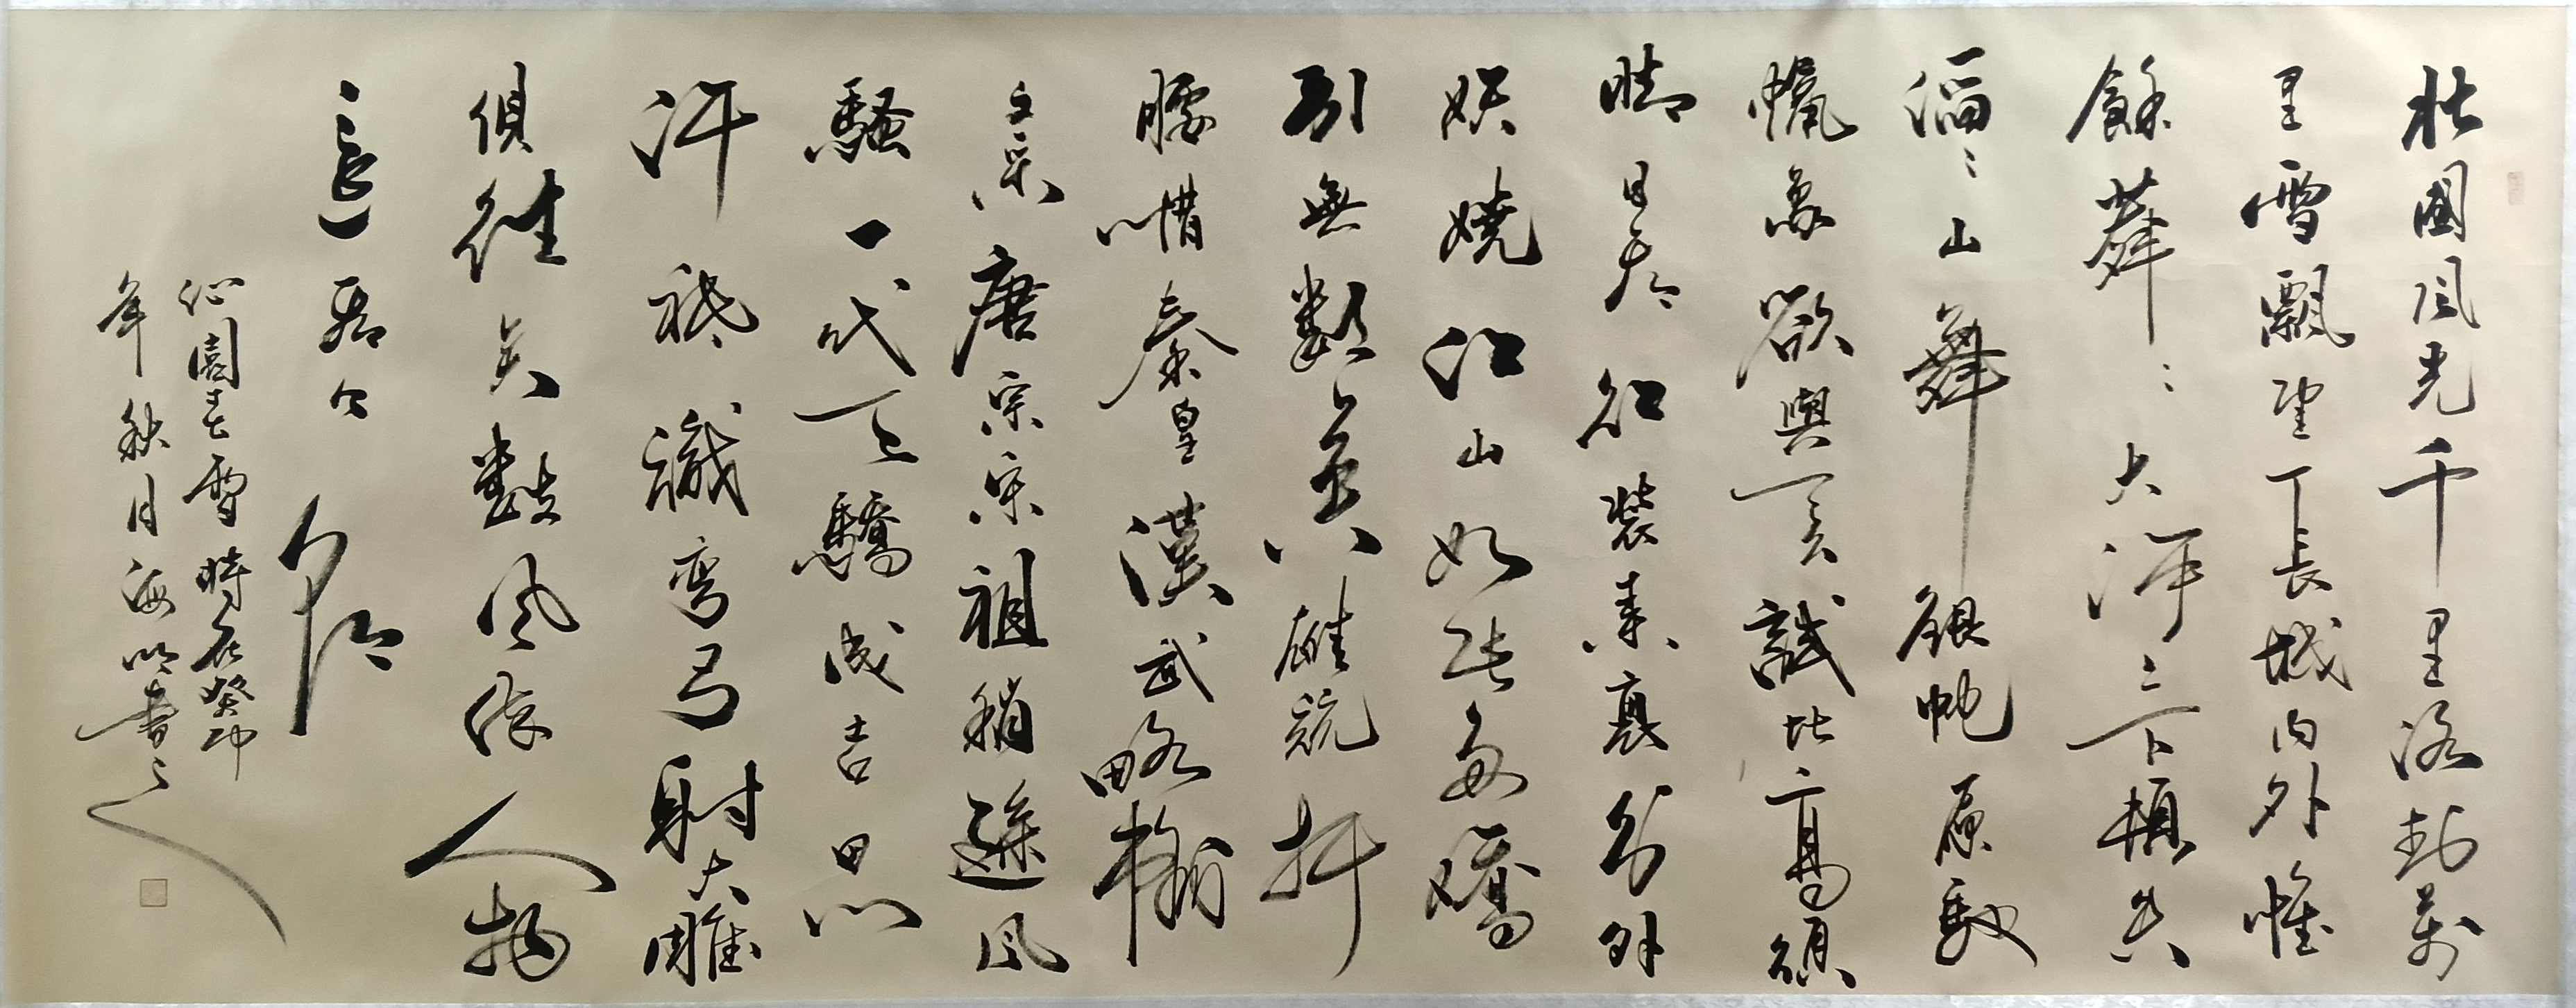 北國風光千里冰封萬
里雪飄望長城内外惟
餘莽〻大河上下頓失
滔〻山舞銀蛇原馳
蠟象欲與天公試比高須
晴日看紅裝素裹分外
妖嬈江山如此多嬌
引無數英雄競折
腰惜秦皇漢武略輸
文采唐宗宋祖稍遜風
騷一代天驕成吉思
汗祇識弯弓射大雕
俱往矣數風流人物
還看今朝
沁園春雪時在癸卯
年秋月海明書